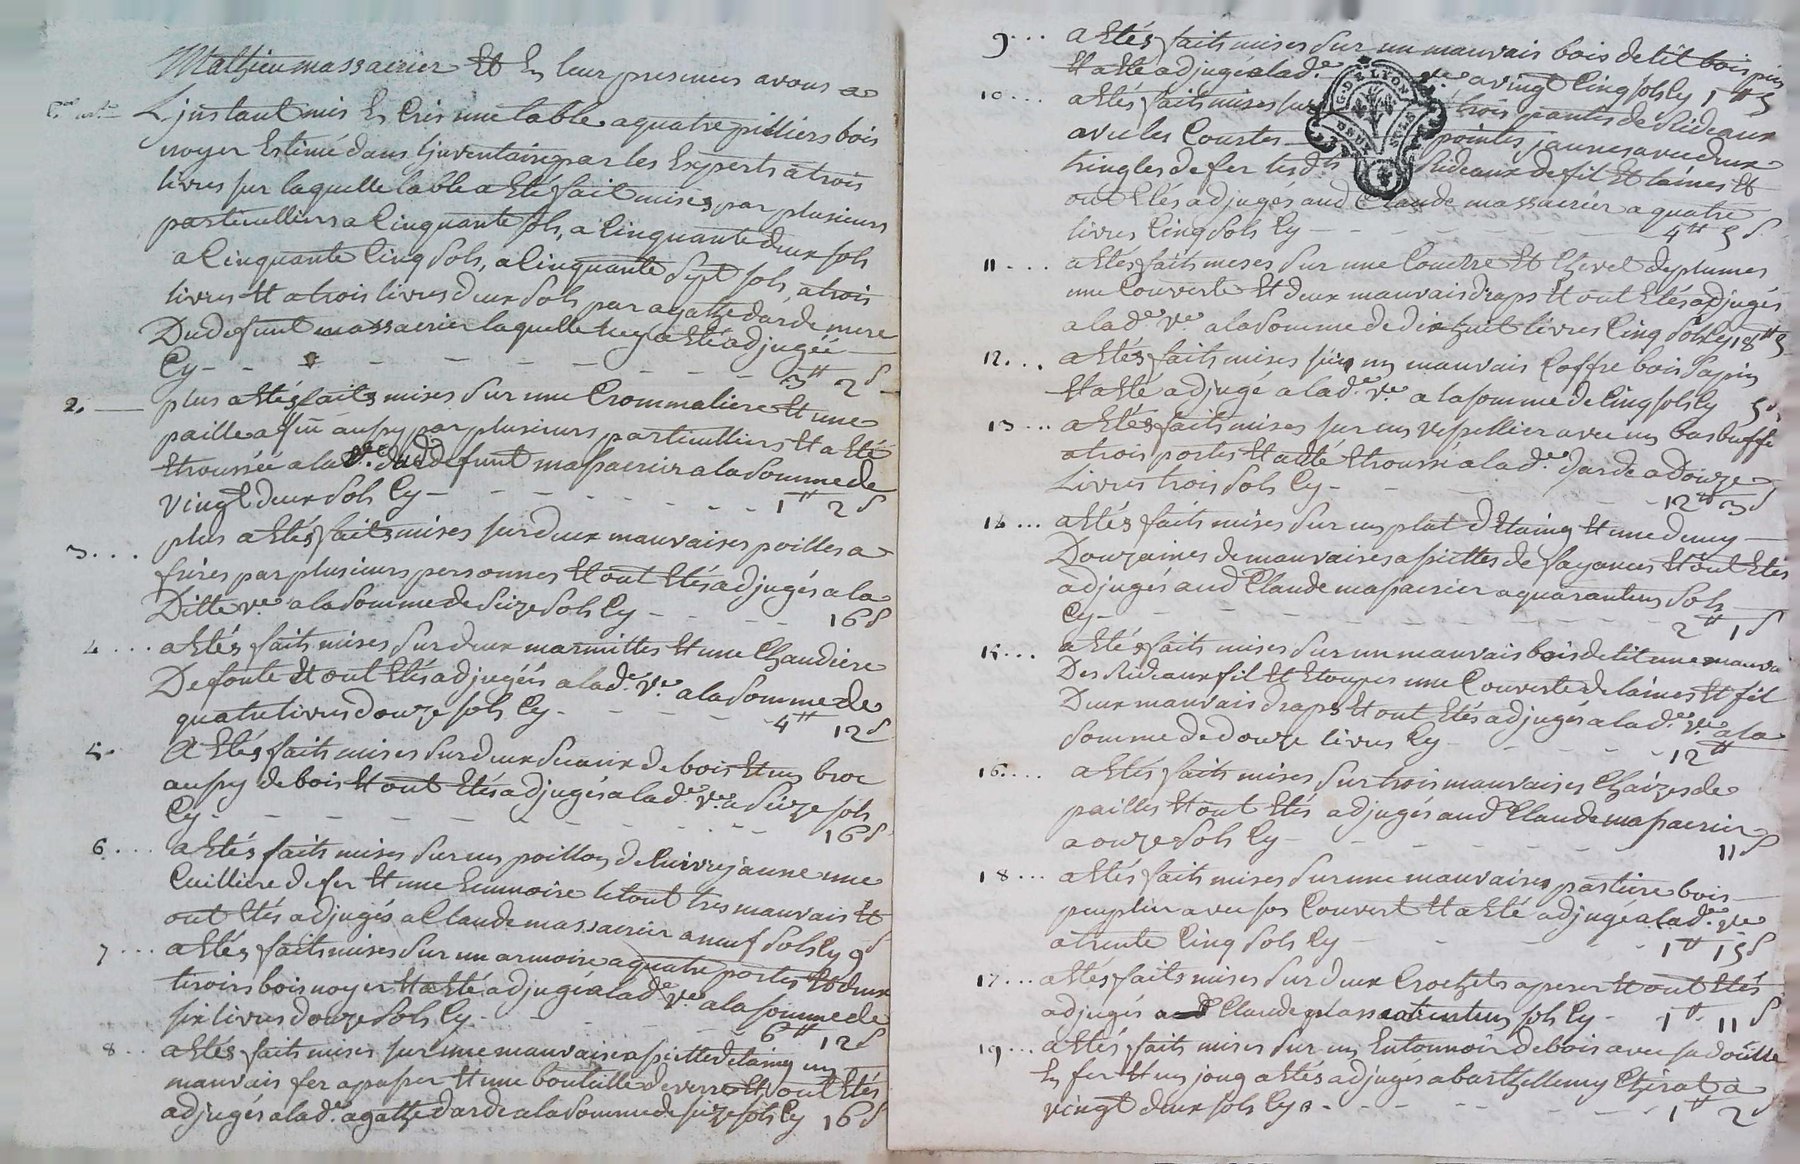 Mathieu massacrier Et En leur presences avons a
L'instant mis En Cris une table a quatre pilliers bois
noyer Estimé dans L'inventaire par les Experts a trois
livres sur laquelle table a Eté fait mises par plusieurs
particulliers a Cinquante sols, a Cinquante deux sols
a Cinquante Cinq sols, a Cinquante Sept sols, a trois
livres Et a trois livres deux sols par agathe darde mere
Du defunt massacrier laquelle luy a Eté adjugée
Cy - - - - - - 3# 2 s
2. plus a Etés faits mises sur une Crommaliere Et une
paille a aussy par plusieurs particulliers Et a Eté
Etroussée a la ve. dud defunt massacrier a la somme de
vingt deux sols Cy - - - - 1# 2 s
3... plus a Etés faits mises sur deux mauvaises poilles a
frires par plusieurs personnes Et ont Etés adjugés a la
Ditte ve. a la somme de seize sols Cy - - - 16 s
4... a Etés faits mises sur deux marmittes Et une Chaudiere
De fonte Et ont Etés adjugéés a la de. ve. a la somme de
quatre livres douze sols Cy - - - 4# 12 s
5. A Etés faits mises sur deux seaux de bois Et un broc
aussy de bois Et ont Etés adjugés a la de. ve. a seize sols
Cy - - - - - - 16 s
6... a Etés faits mises sur un poillon de Cuivre jaune une
Cuilliere de fer Et une Ecumoire le tout tres mauvais Et
ont Etés adjugés a Claude massacrier a neuf sols Cy 9 s
7... a Etés faits mises sur un armoire a quatre portes Et deux
tiroirs bois noyer Et a Eté adjugé a la de. ve. a la somme de
six livres douze sols Cy - - - 6# 12 s
8... a Etés faits mises sur une mauvaise assiette d'Etaing un
mauvais fer a passer Et une bouteille de verre Et ont Etés
adjugés a la de. agathe darde a la somme de seize sols Cy 16 s
9... a Etés faits mises sur un mauvais bois de lit bois pin
Et a Eté adjugé a la de. ve. a vingt Cinq sols Cy 1# 5
10... a Etés faits mises sur trois pantes de Rideaux
avec les Courtes pointes jaunes avec deux
tringles de fer lesds. Rideaux de fil Et laines Et
ont Etés adjugés aud Claude massacrier a quatre
livres Cinq sols Cy - - - - - 4# 5 s
G. DE LYON
11... a Etés faits mises sur une Couettre Et Chevet de plumes
une Couverte Et deux mauvais draps Et ont Etés adjugés
a la de. ve. a la somme de dix huit livres Cinq sols Cy 18# 5
12... a Etés faits mises sur un mauvais Coffre bois sapin
Et a Eté adjugé a la de. ve. a la somme de Cinq sols Cy 5 s
13... a Etés faits mises sur un vessellier avec un bas buffe
a trois portes Et a Eté Etroussé a la de. darde a Douze
Livres trois sols Cy - - - - 12# 3 s
14... a Etés faits mises sur un plat d'Etaing Et une demy
Douzaines de mauvaises assiettes de fayances Et ont Etés
adjugés aud Claude massacrier a quarante un sols
Cy - - - - - - 2# 1 s
15... a Etés faits mises sur un mauvais bois de lit une mauva
Des Rideaux fil Et Etoupes une Couverte de laines Et fil
Deux mauvais draps Et ont Etés adjugés a la de. ve. a la
somme de douze livres Cy - - - - 12#
16... a Etés faits mises sur trois mauvaises Chaizes de
pailles Et ont Etés adjugés aud Claude massacrier
a onze sols Cy - - - - - 11 s
18... a Etés faits mises sur une mauvaises pastiere bois
peuplier avec son Couvert Et a Eté adjugé a la de. ve
a trente Cinq sols Cy - - - - 1# 15 s
17... a Etés faits mises sur deux Crochets a peser Et ont Etés
adjugés aud Claude massa a trente un sols Cy - 1# 11 s
19... a Etés faits mises sur un Entonnoir de bois avec sa doüille
En fer Et un joug a Etés adjuges a barthellemy Chirat a
vingt deux sols Cy. - - - - 1# 2 s